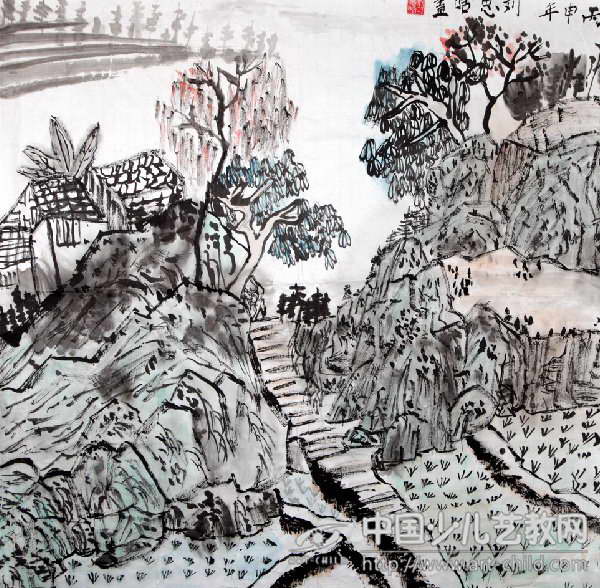 丙申年 刘 画
中国少儿艺教网
http://www.art-child.com